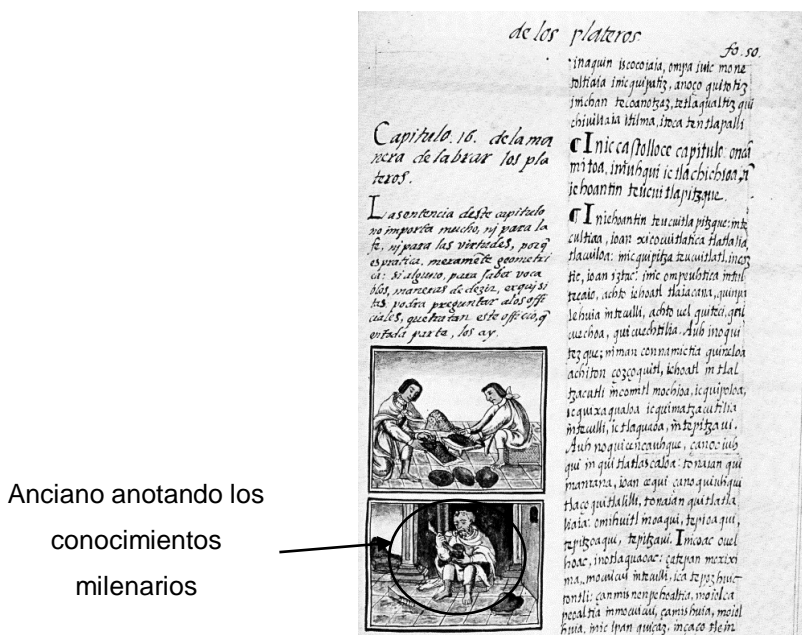 de los plateros.
fo. 50.
Capitulo. 16. de la ma
nera de labrar los pla
teros.
La sentencia deste capitulo
no importa mucho, nj para la
fe, nj para las virtudes, porq̃
es pratica, meramẽte geometri
ca: si alguno, para saber voca
blos, maneras de dezir, exqujsi
tas, podra preguntar alos offi
ciales, que tratan este officio, q̃
en toda parte, los ay.
inaquin iscocoiaia, ompa iuic mone
toltiaia inic quipatiz, anoço quitotiz
inichan tecoanotzaz, tetlaqualtiz qui
chivillaia itilma, itoca tentlapalli
¶ Inic caxtolloce capitulo: oncã
mitoa, in iuhqui ic tlachichioa,
iehoantin teucuitlapitzque.
¶ Iniehoantin teucuitla pitzque:
ioan xicocuitlatica tlatlalia
tlacuiloa: inic quipitza teucuitlatl,
tic, ioan iztac: inic ompeuhtica
achto iehoatl tlaiacana,
in teculli, achto uel quiteci,
cuechoa, qui cuechtilia. Auh inoqui
tez que; niman connamictia quineloa
achiton coçoquitl, iehoatl in tlal
tzacutli in comitl mochioa, ic quipoloa,
ic quixaqualoa ic quimatzacutilia
in teculli, ic tlaquaoa, in tepitzaui.
Auh no quicencauhque, çanoc iuh
qui in qui tlatlascaloa: tonaian qui
manana, ioan cequi çano quiuhqui
tlaço quitlalilli, tonaian quitlatla
liaia: omilhuitl in oaqui, tepioaqui,
tepitzoaqui, tepitzaui. Imcoac ouel
hoac, inotlaquaoac: çatepan
ma, in teculli, ica tepuzhuic
tontli:
Anciano anotando los
conocimientos
milenarios